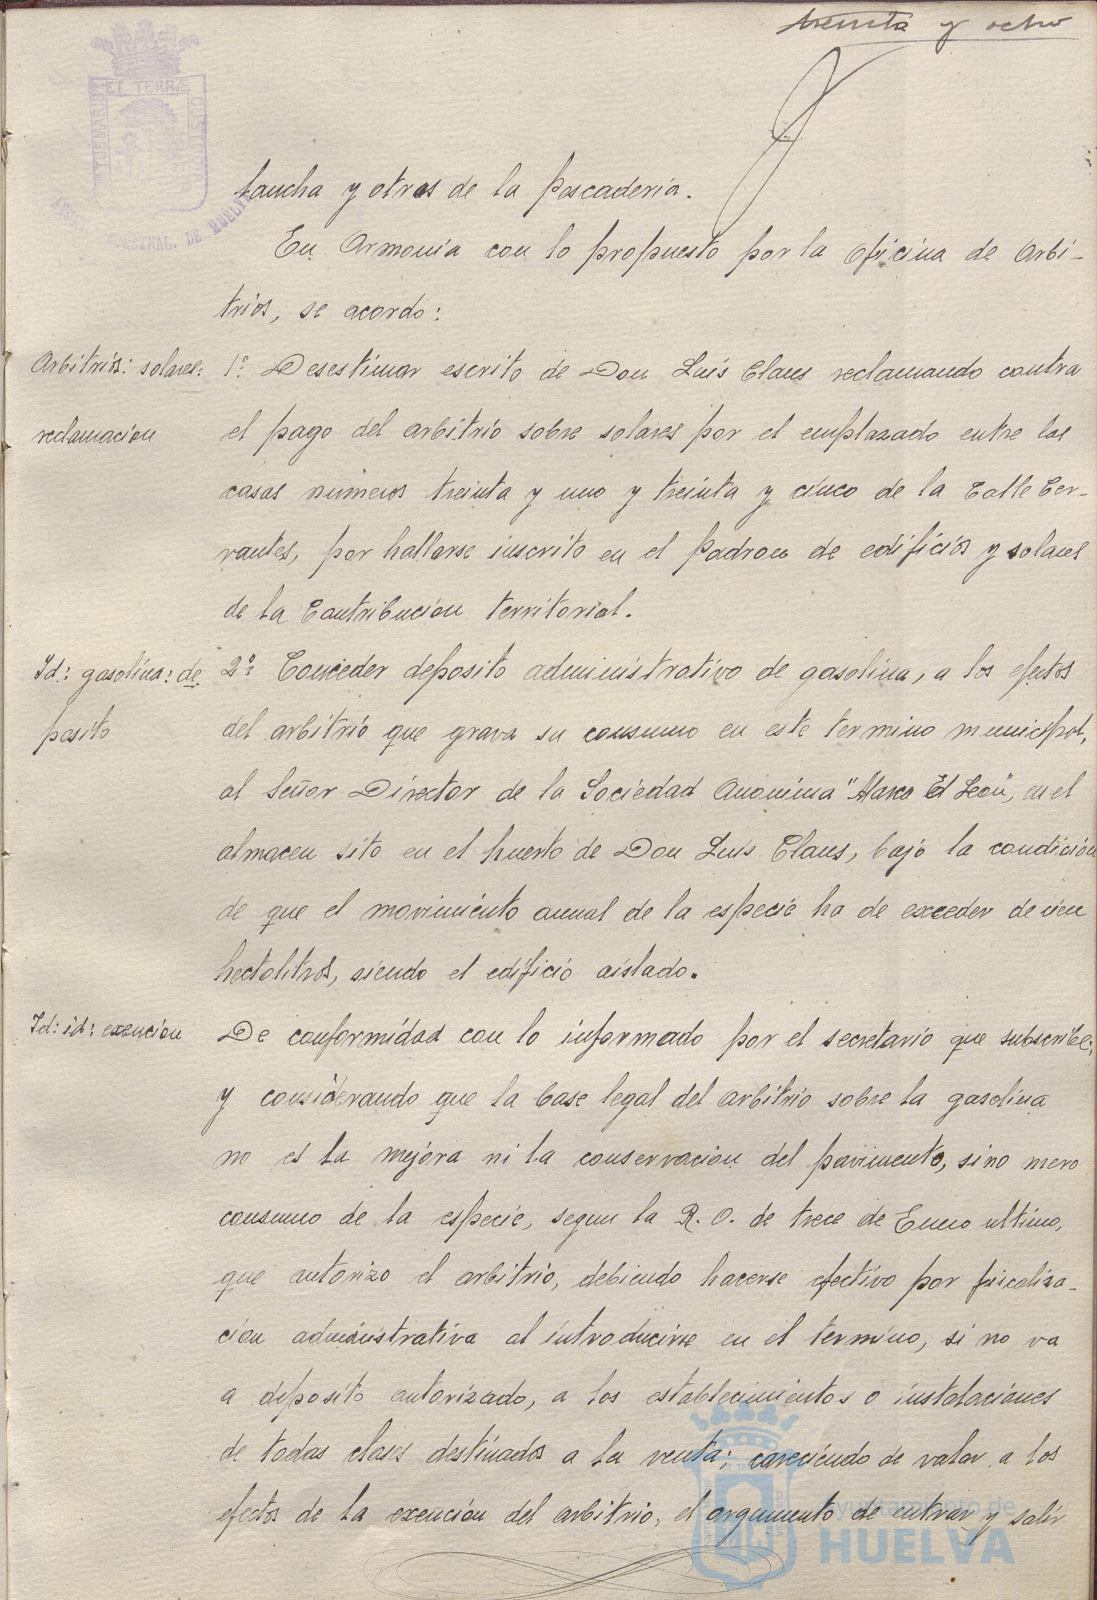 treinta y ocho
PORTUS MARIS ET TERRÆ CUSTODIA
MUNICIPAL. DE HUELVA
y otros de la Pescaderia.
En Armonia con lo propuesto por la Oficina de Arbi-
trios, se acordo:
Arbitrios: solares:
reclamacion
1º Desestimar escrito de Don Luis Claus reclamando contra
el pago del arbitrio sobre solares por el emplazado entre las
casas numeros treinta y uno y treinta y cinco de la Calle Cer-
vantes, por hallarse inscrito en el Padron de edificios y solares
de la Contribucion territorial.
Id: gasolina: de
posito
2º Conceder deposito administrativo de gasolina, a los efectos
del arbitrio que grava su consumo en este termino municipal,
al Señor Director de la Sociedad Anonima "Marca El Leon", en el
almacen sito en el huerto de Don Luis Claus, bajo la condicion
de que el movimiento anual de la especie ha de exceder de cien
hectolitros, siendo el edificio aislado.
Id: id: exencion
De conformidad con lo informado por el secretario que subscribe;
y considerando que la base legal del arbitrio sobre la gasolina
no es la mejora ni la conservacion del pavimento, sino mero
consumo de la especie, segun la R. O. de trece de Enero ultimo,
que autorizo el arbitrio, debiendo hacerse efectivo por fiscaliza-
cion administrativa al introducirse en el termino, si no va
a deposito autorizado, a los establecimientos o instalaciones
de todas clases destinados a la venta; careciendo de valor a los
efectos de la exencion del arbitrio, el argumento de entrar y salir
ayuntamiento de
HUELVA